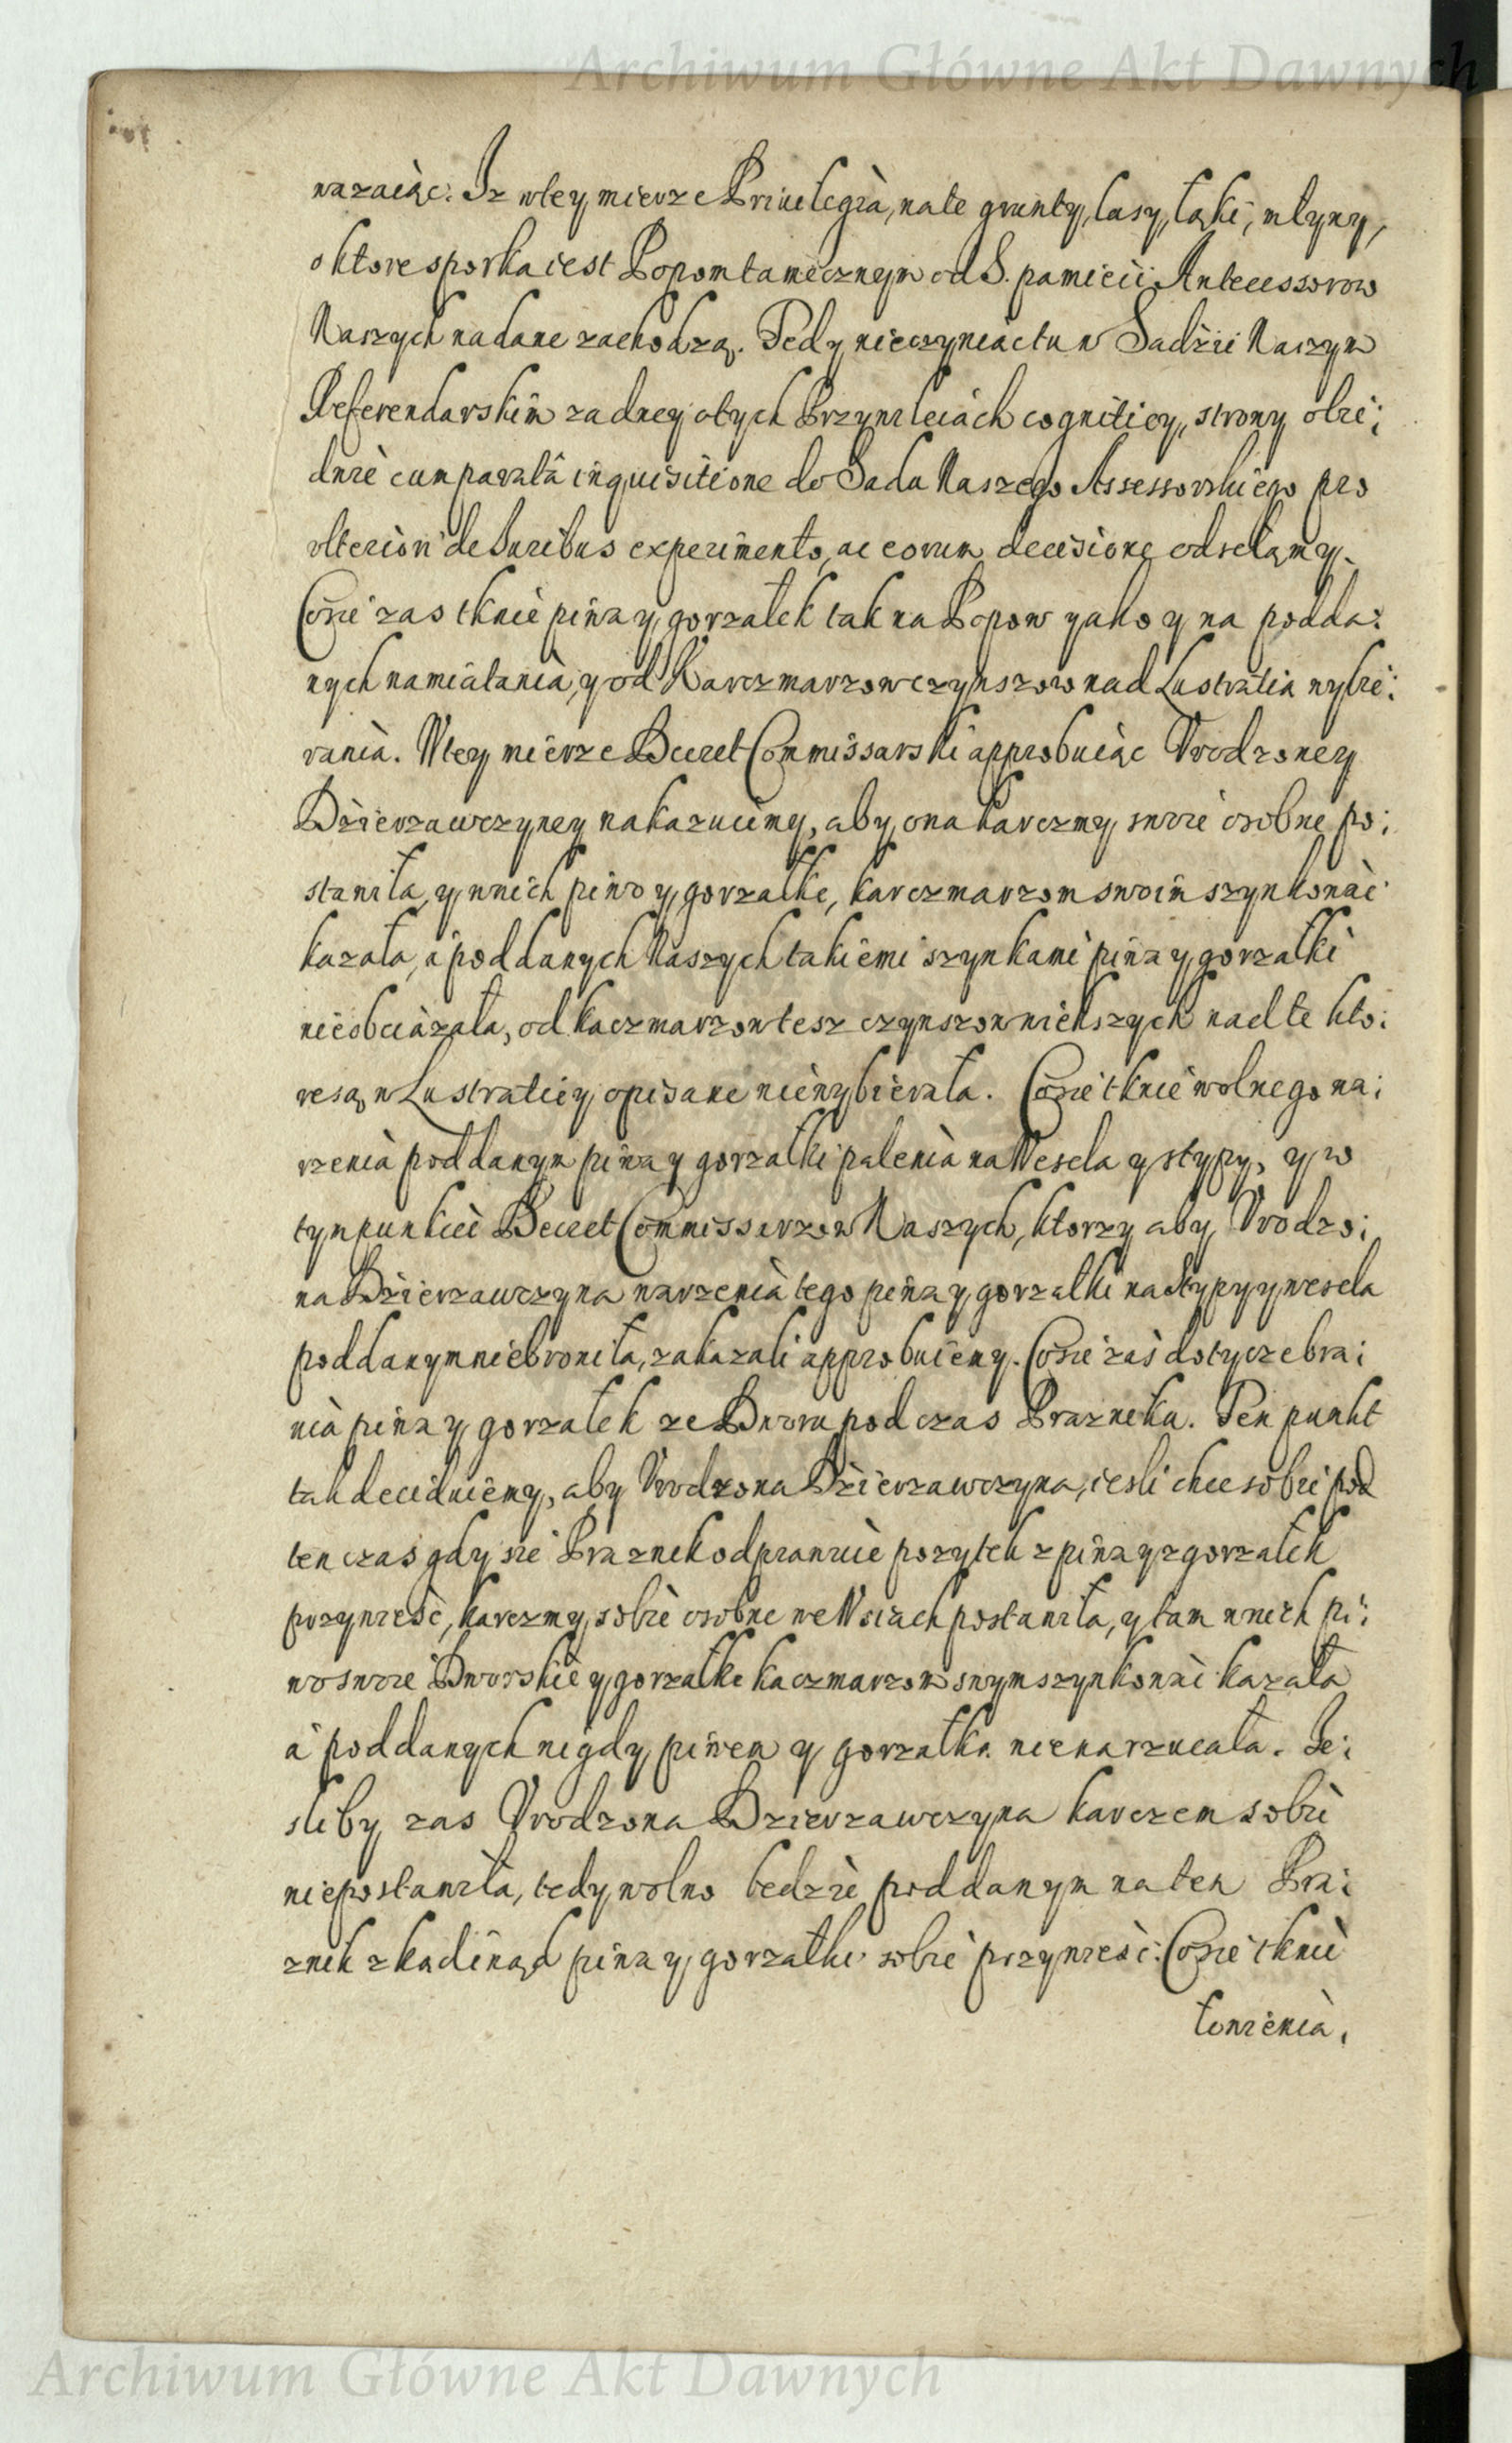 Archiwum Główne Akt Dawnych
nazaiąc. Iz wtey mierze Priuilegia, na te grunty, lasy, łąki, młyny,
o ktore sporka iest Popom tamecznym od S. pamięci Antecessorow
Naszych nadane zachodzą. Tedy nieczyniąc tu w Sądzie Naszym
Referendarskim zadney o tych Przywileiach cognitiey, strony obie:
dwie cum parata inquisitione do Sądu Naszego Assessorskiego pro
vlteriori de Iuribus experimento, ac eorum decisione odsełamy.
Co się zas tknie piwa y gorzałek tak na Popow yako y na podda:
nych namiatania, y od Karczmarzow czynszow nad Lustratią wybie:
rania. W tey mierze Decret Commissarski approbuiąc Vrodzoney
Dzierzawczyney nakazuiemy, aby ona karczmy swoie osobne po:
stawiła, y w nich piwo y gorzałkę, karczmarzom swoim szynkowac
kazała, a poddanych Naszych takiemi szynkami piwa y gorzałki
nieobciązała, od kaczmarzow tesz czynszow większych nad te kto:
re są w Lustratiey opisane niewybierała. Co się tknie wolnego wa:
rzenia poddanym piwa y gorzałki palenia na Wesela y stypy, y w
tym punkcie Decret Commissarzow Naszych, ktorzy aby Vrodzo:
na Dzierzawczyna warzenia tego piwa y gorzałki na stypy y wesela
poddanym niebroniła, zakazali approbuiemy. Co się zas dotycze bra:
nia piwa y gorzałek ze Dworu pod czas Praznika. Ten punkt
tak deciduiemy, aby Vrodzona Dzierzawczyna, iesli chce sobie pod
ten czas gdy się Praznik odprawuie pozytek z piwa y z gorzałek
przyniesć, karczmy sobie osobne we Wsiach postawiła, y tam w nich pi:
wo swoie Dworskie y gorzałkę kaczmarzom swym szynkowac kazała
a poddanych nigdy piwem y gorzałką nienarzucała. Ie:
sliby zas Vrodzona Dzierzawczyna karczem sobie
niepostawiła, tedy wolno będzie poddanym na ten Pra:
znik zkądinąd piwa y gorzałki sobie przyniesć. Co się tknie
łowienia,
Archiwum Główne Akt Dawnych